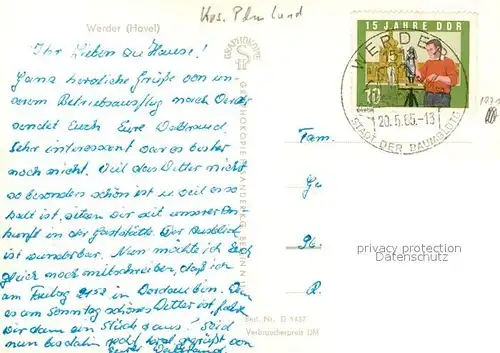 Werder (Havel)
Ihr Lieben zu Hause!
Ganz herzliche Grüße von un-
serem Betriebsausflug nach Werder
sendet Euch Eure Waltraud.
Sehr interessant war es bisher
noch nicht. Weil das Wetter nicht
so besonders schön ist u. weil es so
kalt ist, sitzen wir seit unserer An-
kunft in der Gaststätte. Der Ausblick
ist wunderbar. Nun möchte ich Euch
gleich noch mitschreiben, daß ich
am Freitag 21⁵² in bin. Wenn
es am Sonntag schönes Wetter ist,
wir dann ein Stück raus! Seid
nun bis dahin recht gegrüßt von
Eurer Waltraud.
GRAPHOKOPIE
GRAPHOKOPIE H. SANDER KG. BERLIN N
Best. Nr. D 1437
Verbraucherpreis DM
15 JAHRE DDR
10
WERDER
20.5.65.-13
STADT DER BAUMBLÜTE
Fam.
privacy protection
www.ansichtskartenversand.com